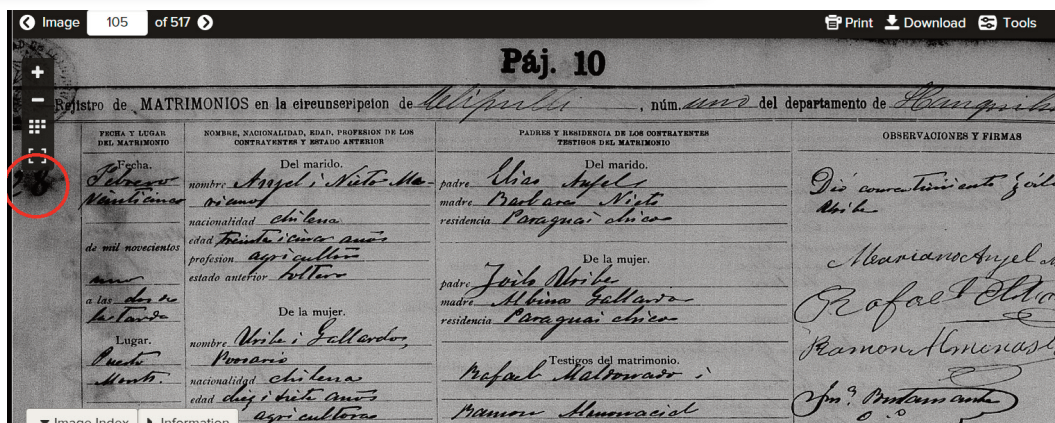 Image 105 of 517
Print Download Tools
Páj. 10
Rejistro de MATRIMONIOS en la circunscripcion de Melipulli, núm. uno del departamento de Llanquihue
FECHA Y LUGAR
DEL MATRIMONIO
NOMBRE, NACIONALIDAD, EDAD, PROFESION DE LOS
CONTRAYENTES Y ESTADO ANTERIOR
PADRES Y RESIDENCIA DE LOS CONTRAYENTES
TESTIGOS DEL MATRIMONIO
OBSERVACIONES Y FIRMAS
Fecha.
Febrero
veinticinco
de mil novecientos
uno
a las dos de
la tarde
Lugar.
Puerto
Montt.
Del marido.
nombre Anjel i Nieto Ma-
riano
nacionalidad chilena
edad treinta i cinco años
profesion agricultor
estado anterior soltero
De la mujer.
nombre Uribe i Gallardo,
Rosario
nacionalidad chilena
edad diez i siete años
agricultora
Del marido.
padre Elias Anjel
madre Barbara Nieto
residencia Paraguai chico
De la mujer.
padre Uribe
madre Albina Gallardo
residencia Paraguai chico
Testigos del matrimonio.
Rafael Maldonado i
Ramon Almonacid
Dió consentimiento
Uribe
Mariano Anjel
Rafael
Ramon Almonasi
Bustamante
Image Index Information